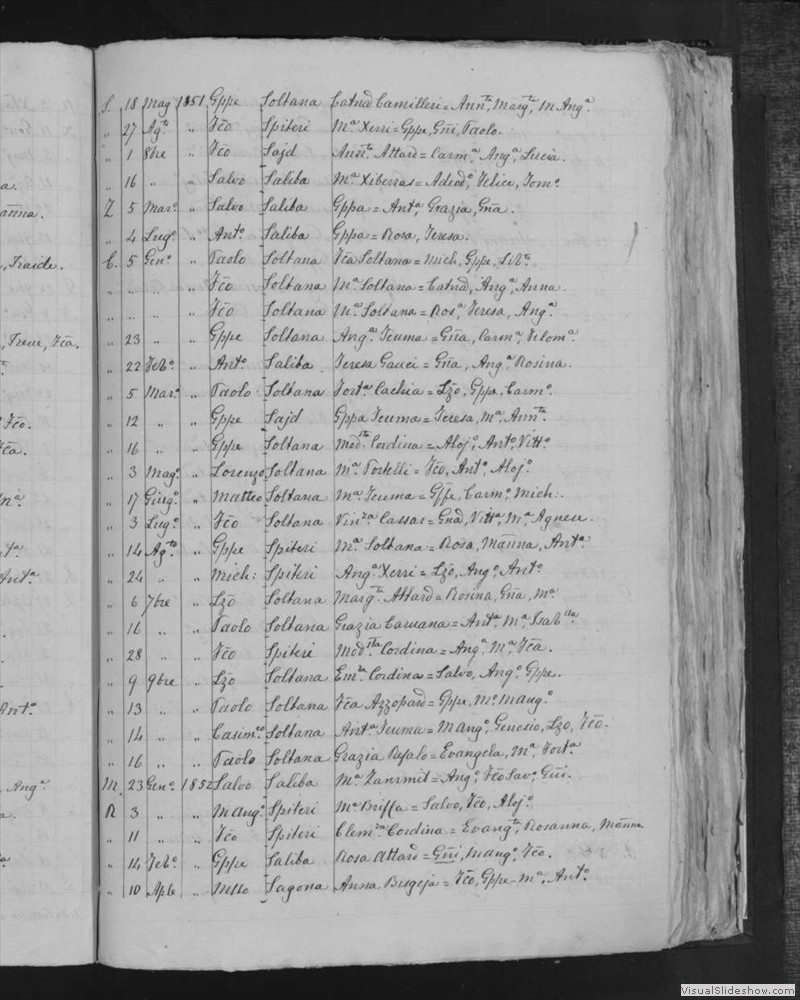 S. 18 Mag 1851 Gppe Soltana Catnd Camilleri = Annta, Margta, M Anga
" 27 Agto " Fco Spiteri Ma Xerri = Gppe, Gni, Paolo.
" 1 8bre " Fco Sajd Annta Attard = Carma, Anga, Lucia.
" 16 " " Salvo Saliba Ma Xiberras = Adeodo, Felice, Tomo
a.
Z 5 Maro " Salvo Saliba Gppa = Anta, Grazia, Gña.
anna.
" 4 Lugo " Anto Saliba Gppa = Rosa, Teresa.
C. 5 Geno " Paolo Soltana Fca Soltana = Mich, Gppe,
" " " " Fco Soltana Ma Soltana = Catnd, Anga, Anna
" " " " Fco Soltana Ma Soltana = Rosa, Teresa, Anga
" 23 " " Gppe Soltana Anga Teuma = Gña, Carma, Filoma
, Fca.
" 22 Febo " Anto Saliba Teresa Gauci = Gña, Anga Rosina.
" 5 Maro " Paolo Soltana Forta Cachia = Lzo, Gppe, Carmo
" 12 " " Gppe Sajd Gppa Teuma = Teresa, Ma, Annta
Fco.
" 16 " " Gppe Soltana Modta Cordina = Alojo, Anto, Vitto
Fca.
" 3 Mago " Lorenzo Soltana Ma Portelli = Fco, Anto, Alojo
" 17 Giugo " Matteo Soltana Ma Teuma = Gppe, Carmo, Mich:.
" 3 Lugo " Fco Soltana Vinza Cassar = Gnd, Vitta, Ma, Agnese.
" 14 Agto " Gppe Spiteri Ma Soltana = Rosa, Mañna, Anta
" 24 " " Mich: Spiteri Anga Xerri = Lzo, Ango, Anto
Anta
" 6 7bre " Lzo Soltana Margta Attard = Rosina, Gña, Ma
" 16 " " Paolo Soltana Grazia Caruana = Anta, Ma, Isablla
" 28 " " Fco Spiteri Modsta Cordina = Anga, Ma, Fca.
" 9 9bre " Lzo Soltana Emta Cordina = Salvo, Ango, Gppe.
" 13 " " Paolo Soltana Fca Azzopard = Gppe, Mo, Mango
Anto
" 14 " " Casimro Soltana Anta Teuma = Mango, Genesio, Lzo, Fco.
" 16 " " Paolo Soltana Grazia Refalo = Evangela, Ma, Forta
, Anga
M. 23 Geno 1852 Salvo Saliba Ma = Ango, Fco Savo, Gni.
R 3 " " Mango Spiteri Ma Briffa = Salvo, Fco, Alojo
" 11 " " Fco Spiteri Clemza Cordina = Evangta, Rosanna, Mañna
" 14 Febo " Gppe Saliba Rosa Attard = Gni, Mango, Fco.
" 10 Aple " Sagona Anna Bugeja = Fco, Gppe - Ma, Anto
VisualSlideshow.com